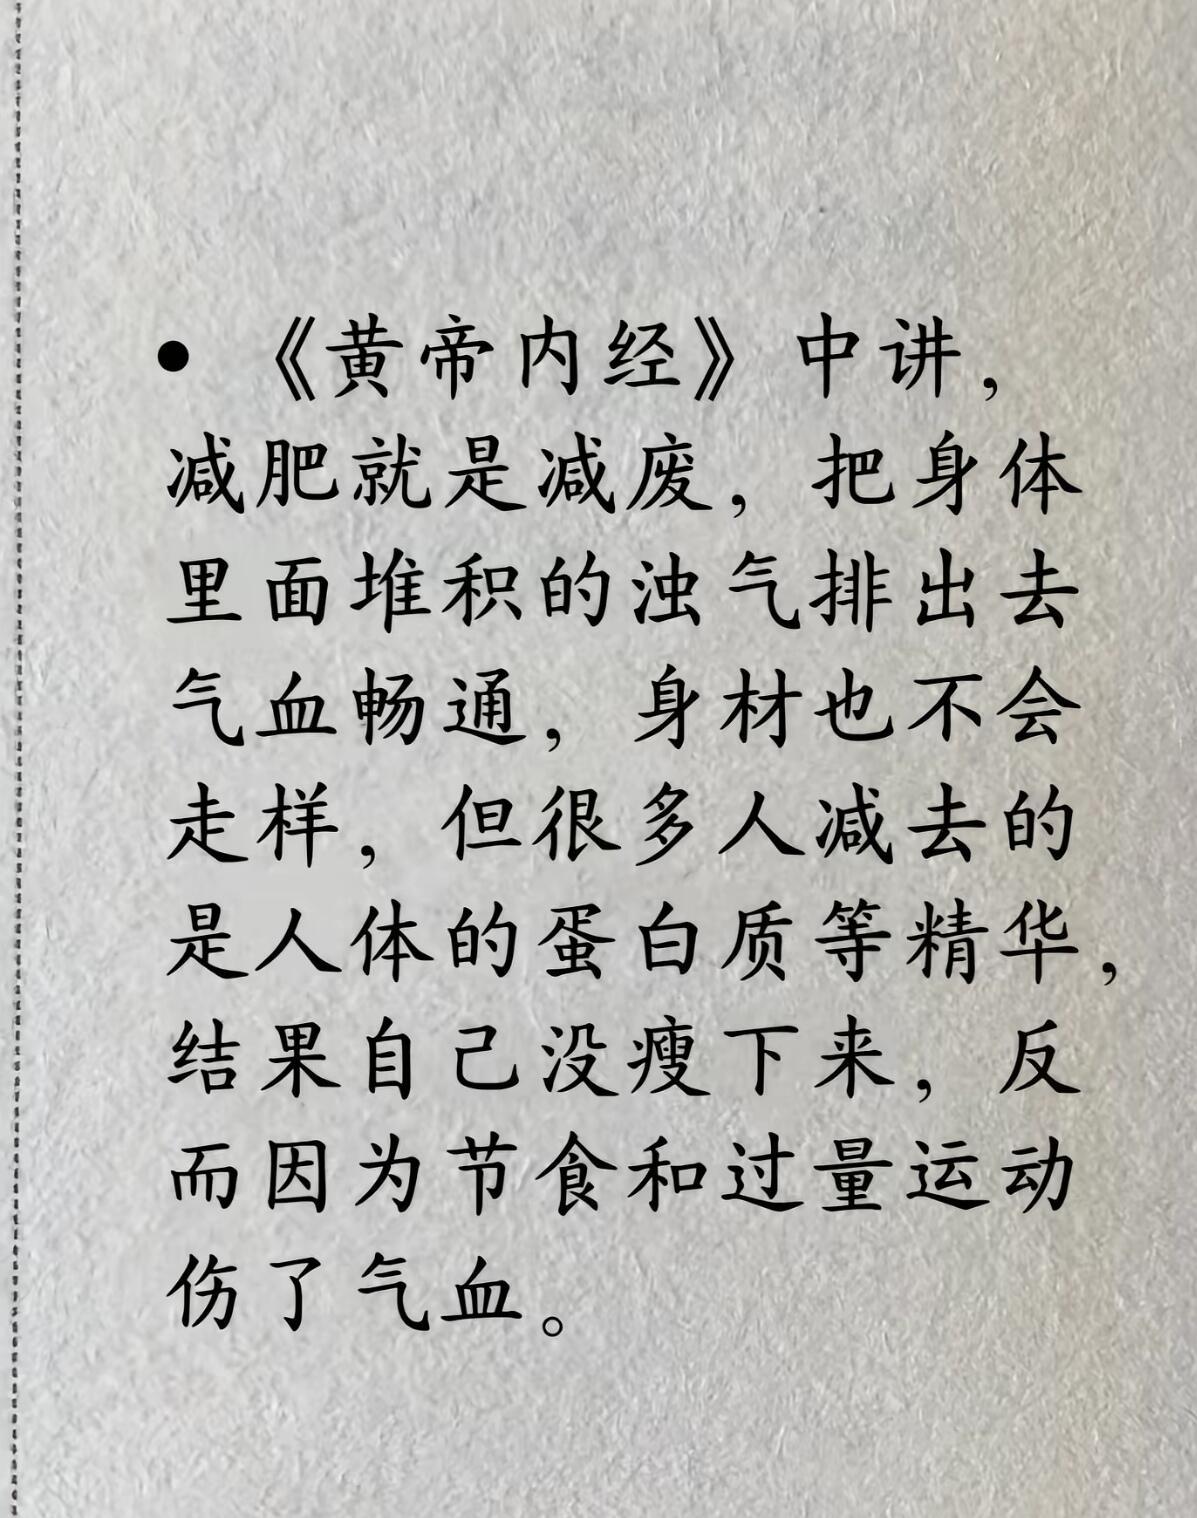 • 《黄帝内经》中讲，
减肥就是减废，把身体
里面堆积的浊气排出去
气血畅通，身材也不会
走样，但很多人减去的
是人体的蛋白质等精华，
结果自己没瘦下来，反
而因为节食和过量运动
伤了气血。